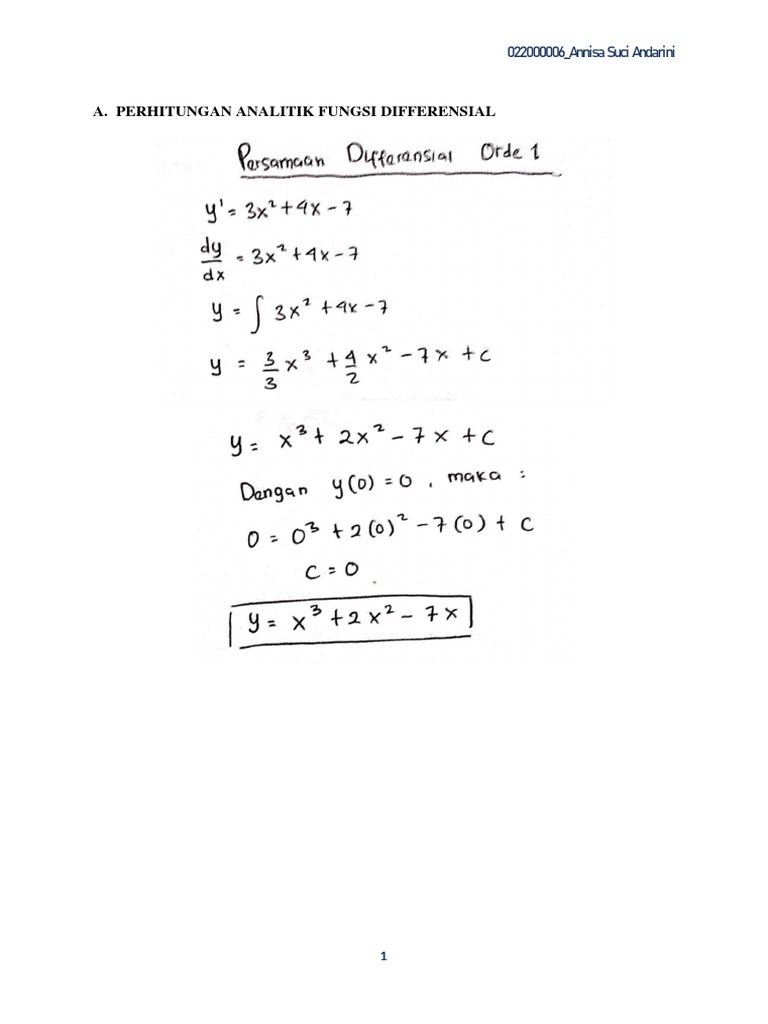 022000006_Annisa Suci Andarini
A. PERHITUNGAN ANALITIK FUNGSI DIFFERENSIAL
Persamaan Differensial Orde 1
y' = 3x² + 4x - 7
dy/dx = 3x² + 4x - 7
y = ∫ 3x² + 4x - 7
y = 3/3 x³ + 4/2 x² - 7x + c
y = x³ + 2x² - 7x + c
Dengan y(0) = 0 , maka :
0 = 0³ + 2(0)² - 7(0) + c
c = 0
y = x³ + 2x² - 7x
1